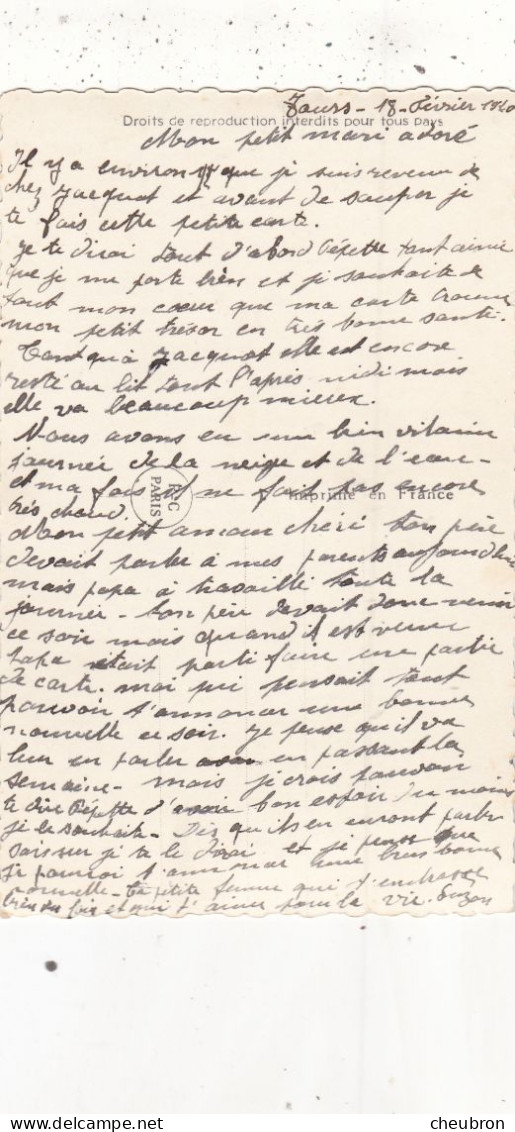 Tours - 18 - Février 1940
Droits de reproduction interdits pour tous pays
Mon petit mari adoré
Il y a environ que je suis revenue de
chez Jacquot et avant de souper je
te fais cette petite carte.
Je te dirai tout d'abord Pépette tant aimé
que je me porte bien et je souhaite de
tout mon coeur que ma carte trouve
mon petit trésor en très bonne santé.
Tant qu'à Jacquot elle est encore
resté au lit tout l'après midi mais
elle va beaucoup mieux.
Nous avons eu une bien vilaine
journée de la neige et de l'eau -
et ma fois il ne fait pas encore
très chaud.
REC
PARIS
Imprimé en France
Mon petit amour chéri ton père
devait parler à mes parents aujourd'hui
mais papa à travaillé toute la
journée - ton père devait donc venir
ce soir mais quand il est venu
papa était parti faire une partie
de carte. moi qui pensait tant
pouvoir t'annoncer une bonne
nouvelle ce soir. Je pense qu'il va
leur en parler en passant la
semaine - mais je crois pouvoir
te dire Pépette d'avoir bon espoir du moins
je le souhaite - Dès qu'ils en auront parler
sois sur je te le dirai et je pense que
je pourrai t'annoncer une bien bonne
nouvelle - ta petite femme qui t'embrasse
bien fois et qui t'aime pour la vie. Suzon
cheubron